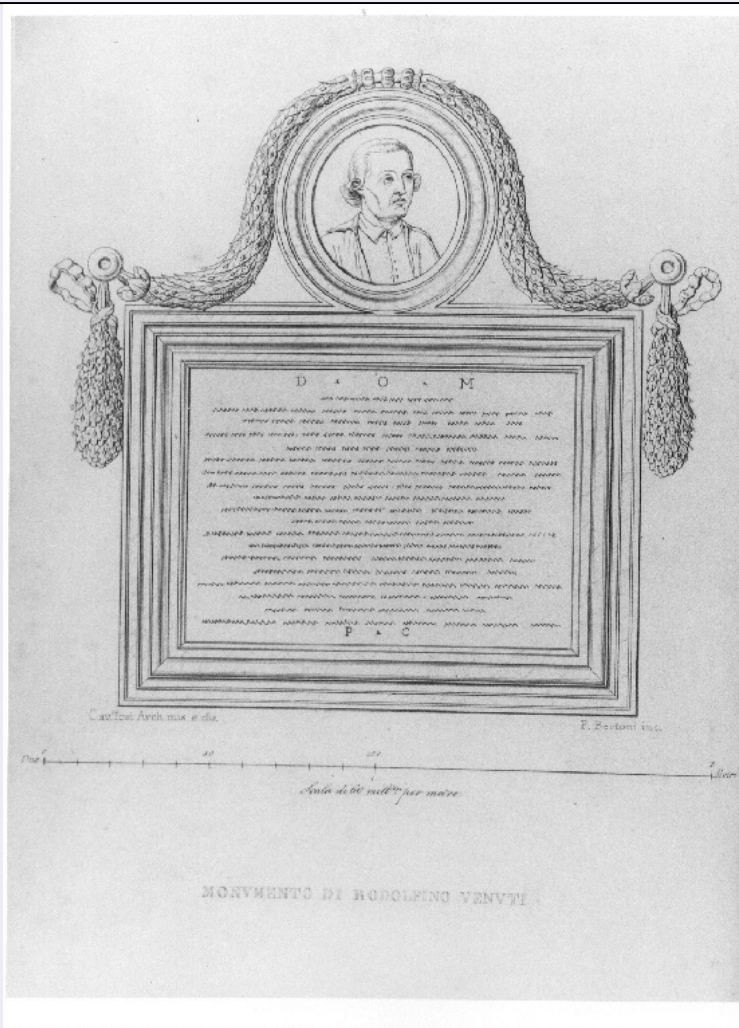 D · O · M
P · C
Cav. Tosi Arch. mis. e dis.
P. Bertoni inc.
0 50 100 2
Scala di per metro
MONVMENTO DI RODOLFINO VENVTI